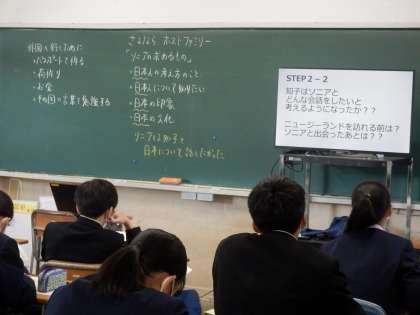 外国へ行くために
・パスポートで作る
・荷作り
・お金
・その国の言葉を勉強する
さよなら ホストファミリー
「ソニアの求めるもの」
・日本人の考え方のこと
・日本人について知りたい
・日本の印象
・日本の文化
ソニアは知子と
日本について話したかった
STEP2－2
知子はソニアと
どんな会話をしたいと
考えるようになったか？？
ニュージーランドを訪れる前は？
ソニアと出会ったあとは？？